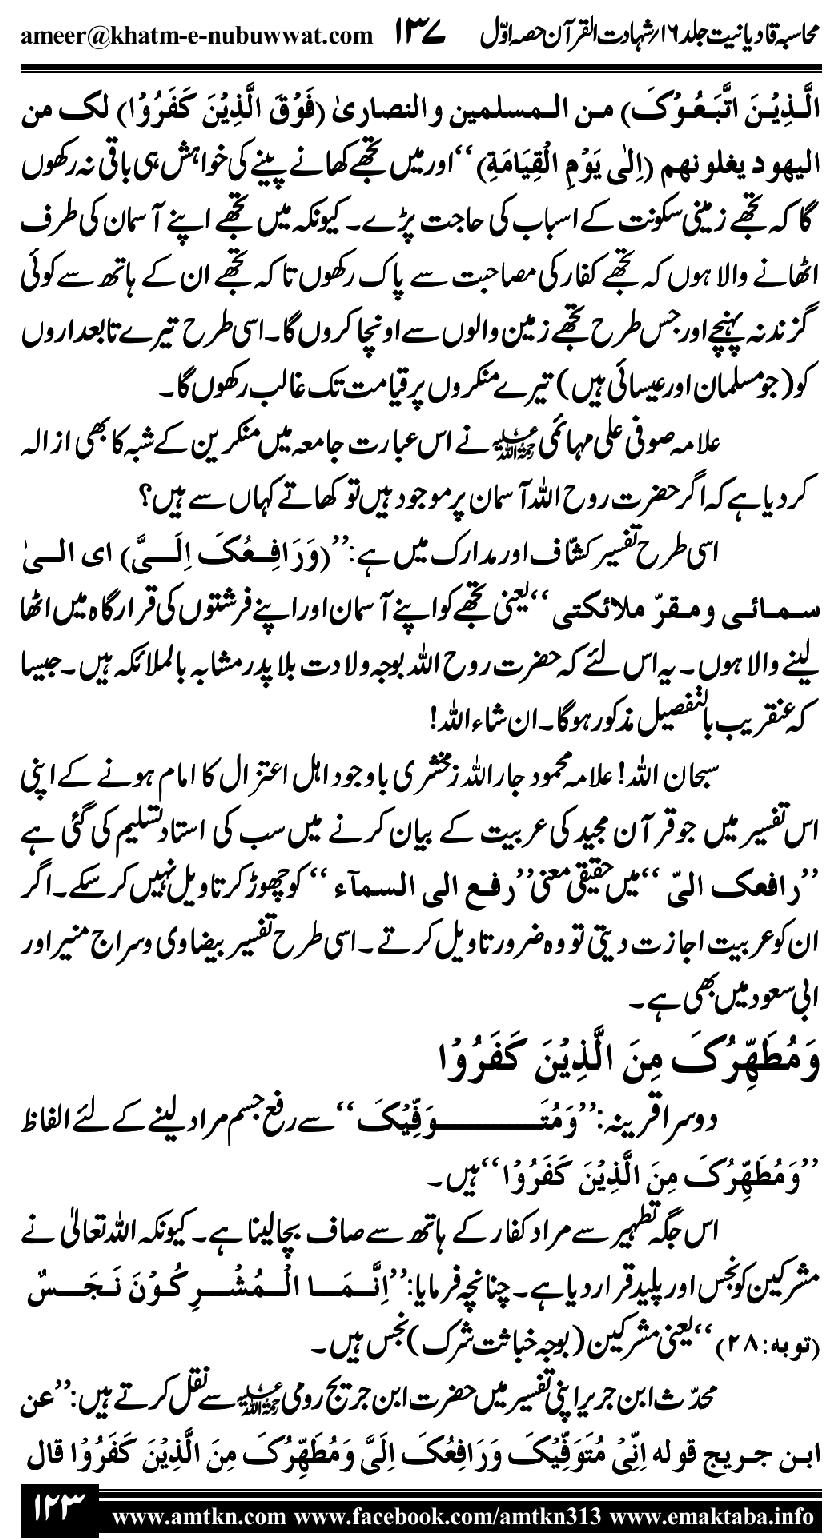 محاسبہ قادیانیت جلد ۱۶/ شہادت القرآن حصہ اوّل ۱۳۷ ameer@khatm-e-nubuwwat.com
الَّـذِیْـنَ اتَّبَعُوْکَ) مـن الـمسلمین والنصاریٰ (فَوْقَ الَّذِیْنَ کَفَرُوْا) لک من
الیھود یغلونھم (اِلٰی یَوْمِ الْقِیَامَةِ)‘‘ اور میں تجھے کھانے پینے کی خواہش ہی باقی نہ رکھوں
گا کہ تجھے زمینی سکونت کے اسباب کی حاجت پڑے۔ کیونکہ میں تجھے اپنے آسمان کی طرف
اٹھانے والا ہوں کہ تجھے کفار کی مصاحبت سے پاک رکھوں تاکہ تجھے ان کے ہاتھ سے کوئی
گزند نہ پہنچے اور جس طرح تجھے زمین والوں سے اونچا کروں گا۔ اسی طرح تیرے تابعداروں
کو (جو مسلمان اور عیسائی ہیں) تیرے منکروں پر قیامت تک غالب رکھوں گا۔
علامہ صوفی علی مہائمی رحمۃ اللہ علیہ نے اس عبارت جامعہ میں منکرین کے شبہ کا بھی ازالہ
کر دیا ہے کہ اگر حضرت روح اللہ آسمان پر موجود ہیں تو کھاتے کہاں سے ہیں؟
اسی طرح تفسیر کشاف اور مدارک میں ہے: ’’(وَرَافِـعُکَ اِلَـیَّ) ای الـیٰ
سمـائـی و مقـرّ ملائکتی‘‘ یعنی تجھے کو اپنے آسمان اور اپنے فرشتوں کی قرار گاہ میں اٹھا
لینے والا ہوں۔ یہ اس لئے کہ حضرت روح اللہ بوجہ ولادت بلا پدر مشابہ بالملائکہ ہیں۔ جیسا
کہ عنقریب بالتفصیل مذکور ہوگا۔ ان شاء اللہ!
سبحان اللہ! علامہ محمود جار اللہ زمخشری باوجود اہل اعتزال کا امام ہونے کے اپنی
اس تفسیر میں جو قرآن مجید کی عربیت کے بیان کرنے میں سب کی استاد تسلیم کی گئی ہے
’’رافعک الیّ‘‘ میں حقیقی معنی ’’رفع الی السمآء‘‘ کو چھوڑ کر تاویل نہیں کر سکے۔ اگر
ان کو عربیت اجازت دیتی تو وہ ضرور تاویل کرتے۔ اسی طرح تفسیر بیضاوی و سراج منیر اور
ابی سعود میں بھی ہے۔
وَمُطَهِّرُکَ مِنَ الَّذِیْنَ کَفَرُوْا
دوسرا قرینہ: ’’وَمُتَـــــوَفِّیْکَ‘‘ سے رفع جسم مراد لینے کے لئے الفاظ
’’وَمُطَهِّرُکَ مِنَ الَّذِیْنَ کَفَرُوْا‘‘ ہیں۔
اس جگہ تطہیر سے مراد کفار کے ہاتھ سے صاف بچا لینا ہے۔ کیونکہ اللہ تعالیٰ نے
مشرکین کو نجس اور پلید قرار دیا ہے۔ چنانچہ فرمایا: ’’اِنَّـمَـا الْـمُشْـرِکُـوْنَ نَـجَـسٌ
(توبہ:۲۸)‘‘ یعنی مشرکین (بوجہ خباثت شرک) نجس ہیں۔
محدّث ابن جریر اپنی تفسیر میں حضرت ابن جریج رومی رحمۃ اللہ علیہ سے نقل کرتے ہیں: ’’عن
ابـن جـریـج قولہ اِنِّیْ مُتَوَفِّیْکَ وَرَافِعُکَ اِلَیَّ وَمُطَهِّرُکَ مِنَ الَّذِیْنَ کَفَرُوْا قال
۱۲۳ www.amtkn.com www.facebook.com/amtkn313 www.emaktaba.info